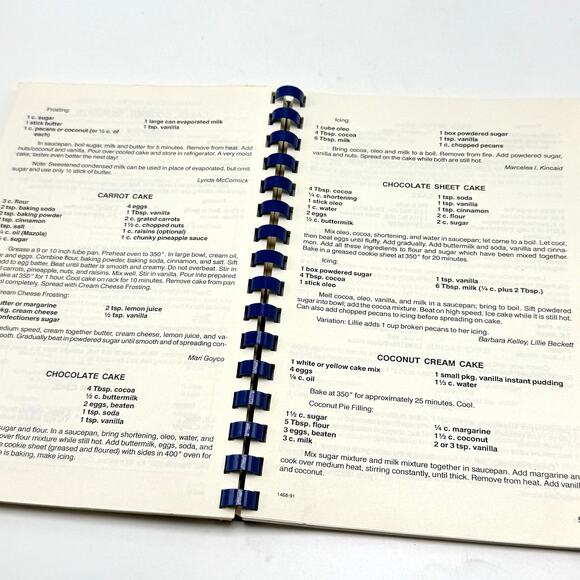 Frosting:
1 c. sugar
1 stick butter
1 c. pecans or coconut (or ½ c. of
each)
1 large can evaporated milk
1 tsp. vanilla
In saucepan, boil sugar, milk and butter for 5 minutes. Remove from heat. Add
nuts/coconut and vanilla. Pour over cooled cake and store in refrigerator. A very moist
cake, tastes even better the next day!
Note: Sweetened condensed milk can be used in place of evaporated, but omit
sugar and use only ½ stick of butter.
Lynda McCormick
CARROT CAKE
3 c. flour
2 tsp. baking soda
tsp. baking powder
tsp. cinnamon
tsp. salt
c. oil (Mazola)
c. sugar
4 eggs
1 Tbsp. vanilla
2 c. grated carrots
1½ c. chopped nuts
1 c. raisins (optional)
1 c. chunky pineapple sauce
Grease a 9 or 10 inch tube pan. Preheat oven to 350°. In large bowl, cream oil,
and eggs. Combine flour, baking powder, baking soda, cinnamon, and salt. Sift
add to egg batter. Beat until batter is smooth and creamy. Do not overbeat. Stir in
carrots, pineapple, nuts, and raisins. Mix well. Stir in vanilla. Pour into greased pan.
cake at 350° for 1 hour. Cool cake on rack for 10 minutes. Remove cake from pan
completely. Spread with Cream Cheese Frosting.
Cream Cheese Frosting:
butter or margarine
pkg. cream cheese
confectioners sugar
2 tsp. lemon juice
½ tsp. vanilla
medium speed, cream together butter, cream cheese, lemon juice, and va-
smooth. Gradually beat in powdered sugar until smooth and of spreading con-
Mari Goyco
CHOCOLATE CAKE
4 Tbsp. cocoa
½ c. buttermilk
2 eggs, beaten
1 tsp. soda
1 tsp. vanilla
sugar and flour. In a saucepan, bring shortening, oleo, water, and
over flour mixture while still hot. Add buttermilk, eggs, soda, and
cookie sheet (greased and floured) with sides in 400° oven for
is baking, make icing.
Icing:
1 cube oleo
4 Tbsp. cocoa
6 Tbsp. milk
1 box powdered sugar
1 tsp. vanilla
1 c. chopped pecans
Bring cocoa, oleo, and milk to a boil. Remove from fire. Add powdered sugar,
vanilla and nuts. Spread on the cake while both are still hot.
Marcelea I. Kincaid
CHOCOLATE SHEET CAKE
4 Tbsp. cocoa
¼ c. shortening
1 stick oleo
1 c. water
2 eggs
½ c. buttermilk
1 tsp. soda
1 tsp. vanilla
1 tsp. cinnamon
2 c. flour
2 c. sugar
Mix oleo, cocoa, shortening, and water in saucepan; let come to a boil. Let cool,
then beat eggs until fluffy. Add gradually. Add buttermilk and soda, vanilla and cinna-
mon. Add all these ingredients to flour and sugar which have been mixed together.
Bake in a greased cookie sheet at 350° for 20 minutes.
Icing:
1 box powdered sugar
4 Tbsp. cocoa
1 stick oleo
1 tsp. vanilla
6 Tbsp. milk (¼ c. plus 2 Tbsp.)
Melt cocoa, oleo, vanilla, and milk in a saucepan; bring to boil. Sift powdered
sugar into bowl; add the cocoa mixture. Beat on high speed. Ice cake while it is still hot.
Can also add chopped pecans to icing before spreading on cake.
Variation: Lillie adds 1 cup broken pecans to her icing.
Barbara Kelley, Lillie Beckett
COCONUT CREAM CAKE
1 white or yellow cake mix
4 eggs
¼ c. oil
1 small pkg. vanilla instant pudding
1½ c. water
Bake at 350° for approximately 25 minutes. Cool.
Coconut Pie Filling:
1½ c. sugar
5 Tbsp. flour
3 eggs, beaten
3 c. milk
¼ c. margarine
1½ c. coconut
2 or 3 tsp. vanilla
Mix sugar mixture and milk mixture together in saucepan. Add margarine and
cook over medium heat, stirring constantly, until thick. Remove from heat. Add vanilla
and coconut.
1468-91